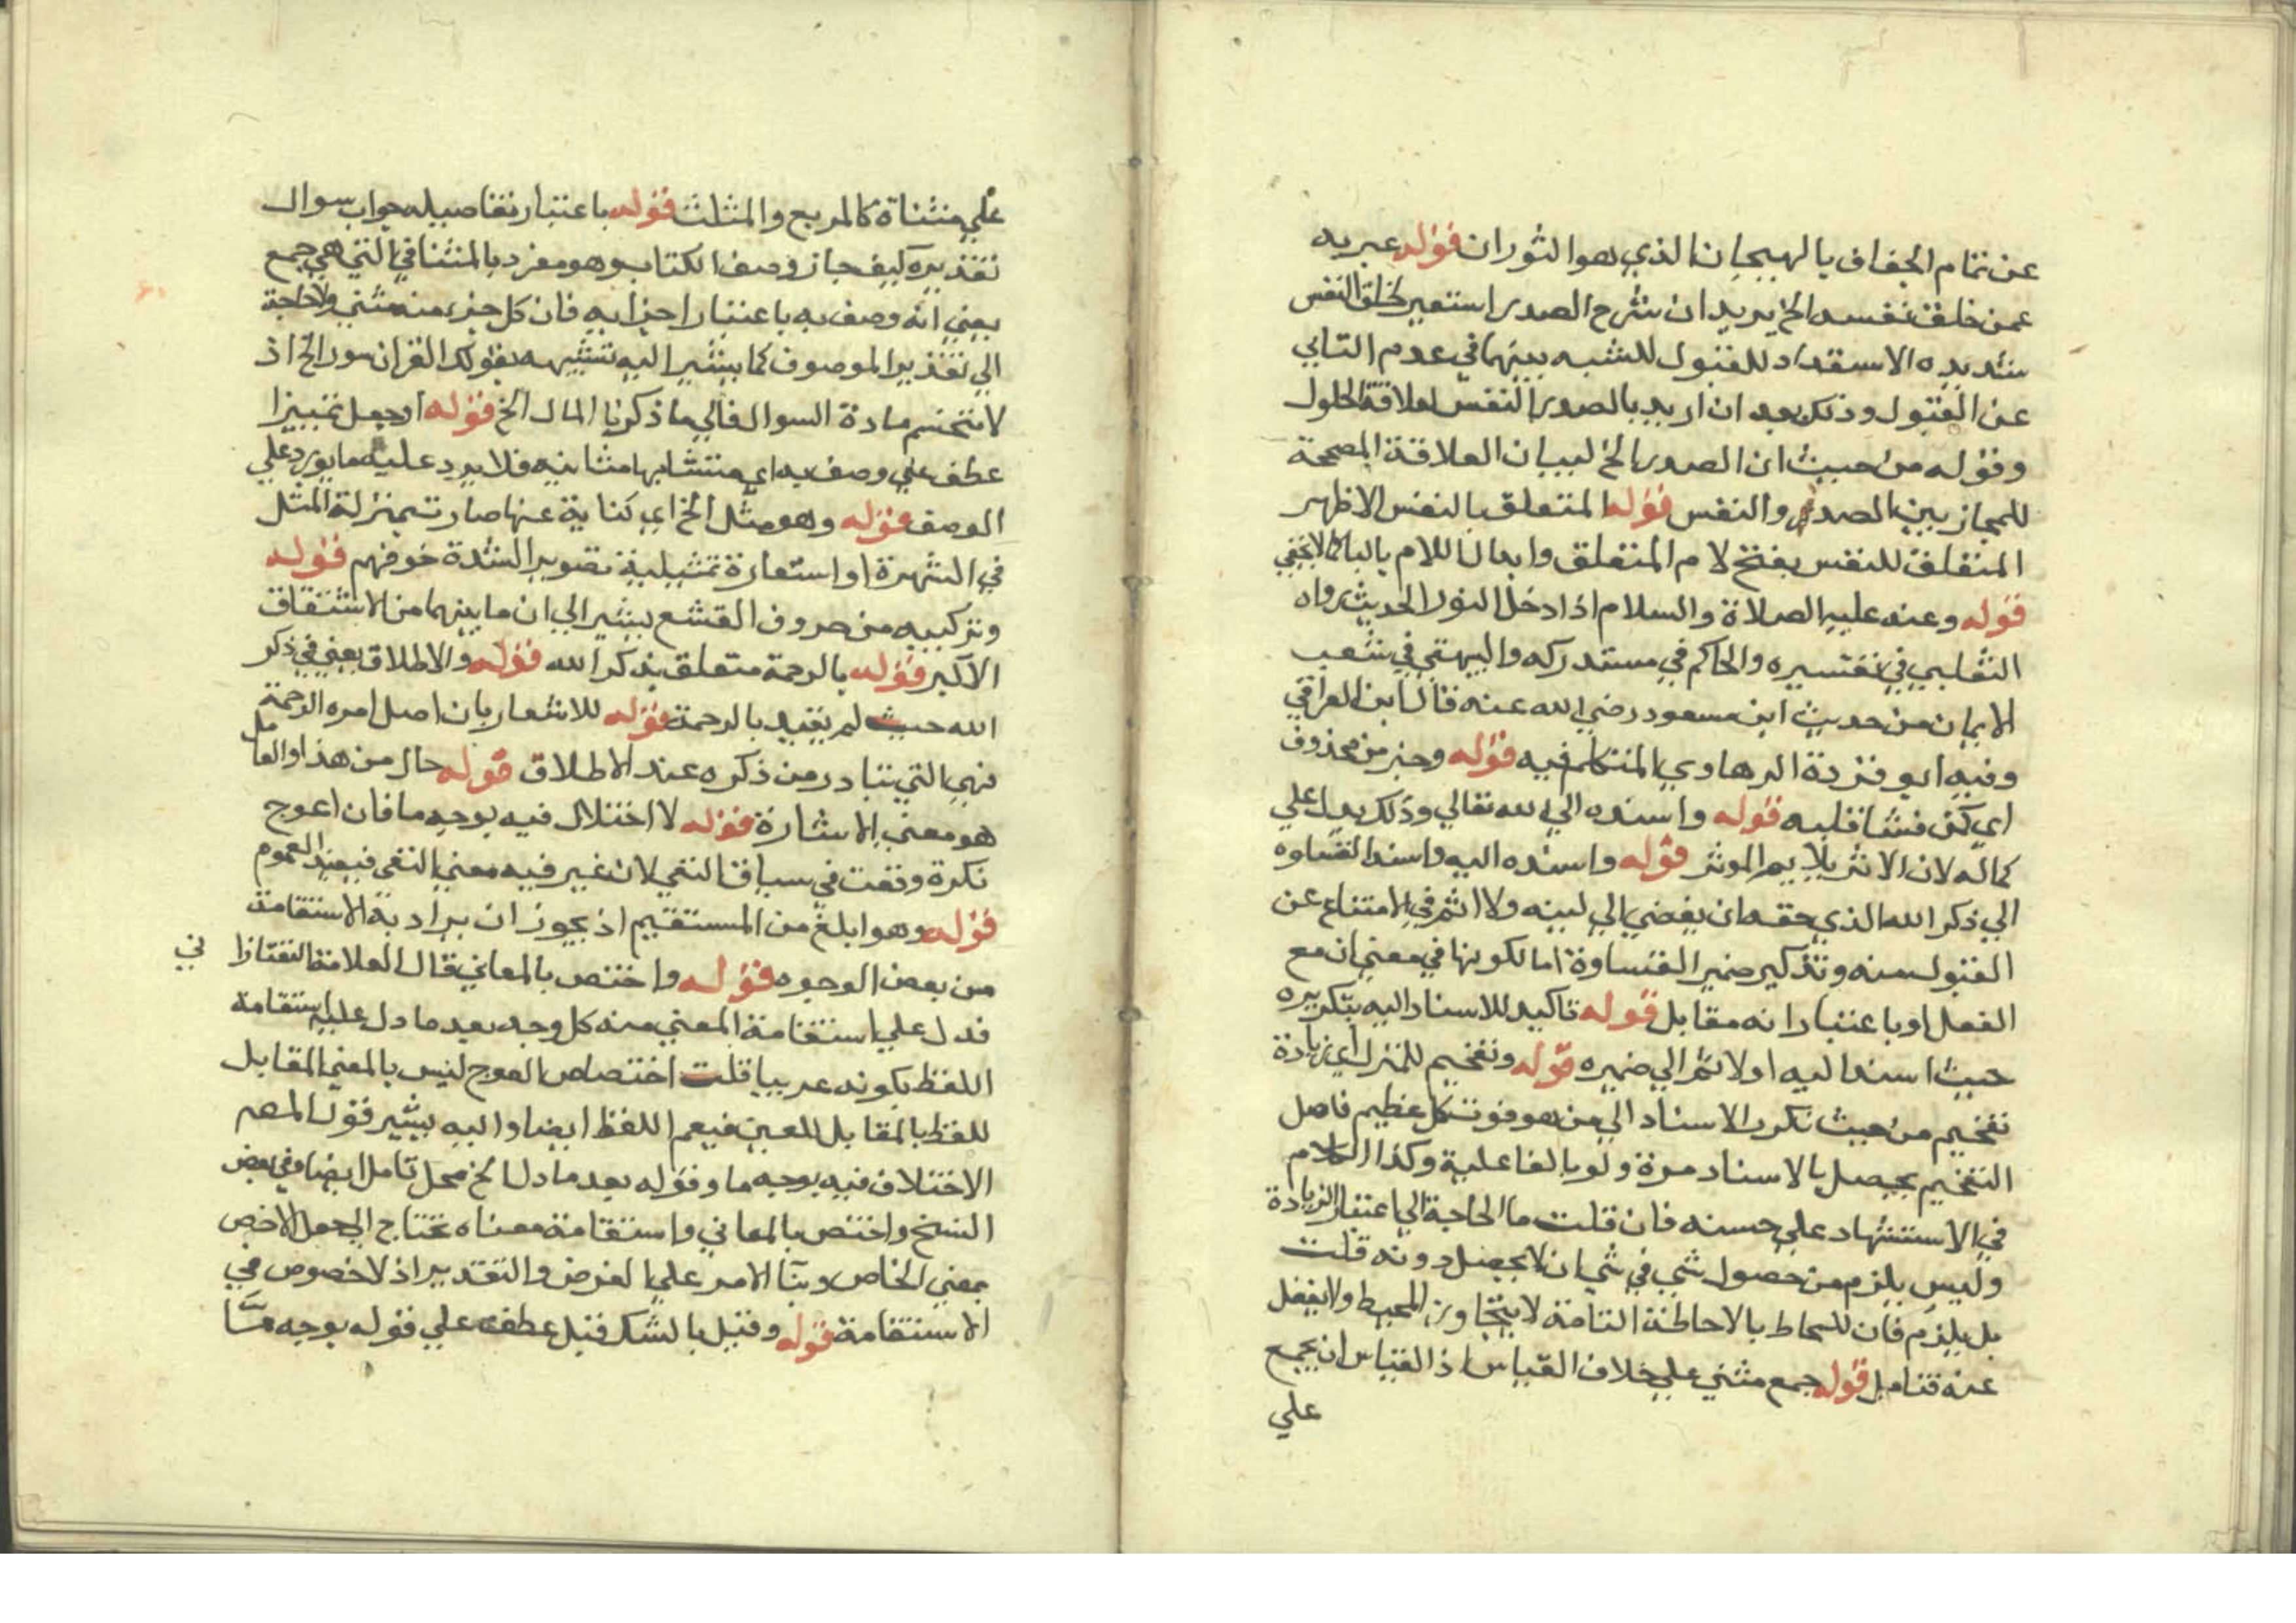 عن تمام الجفاف بالهيجان الذي هو الثوران قوله عبر به
عمن خلق نفسه الخ يريد ان شرح الصدر استعير لخلق النفس
شديدة الاستعداد للقبول للشبه بينهما في عدم التابي
عن القبول وذلك بعد ان اريد بالصدر النفس لعلاقة الحلول
وقوله من حيث ان الصدر الخ لبيان العلاقة المصححة
للمجاز بين الصدر والنفس قوله المتعلق بالنفس الاظهر
المتعلق للنفس بفتح لام المتعلق وابدال اللام بالبا كما لا يخفي
قوله وعنه عليه الصلاة والسلام اذا دخل النور الحديث رواه
الثعلبي في تفسيره والحاكم في مستدركه والبيهقي في شعب
الايمان من حديث ابن مسعود رضي الله عنه قال ابن العراقي
وفيه ابو فزدة الرهاوي المتكلم فيه قوله وخبر من محذوف
اي كمن قسا قلبه قوله واسنده الي الله تعالي وذلك يدل علي
كماله لان الاثر يلايم الموثر قوله واسنده اليه واسند القساوه
الي ذكر الله الذي حقه ان يفضي الي لينه ولا اثم في الامتناع عن
القبول منه وتذكير ضمير القساوة اما لكونها في معني ان مع
الفعل او باعتبار انه مقابل قوله تاكيد للاسناد اليه بتكريره
حيث اسند اليه اولا ثم الي ضميره قوله وتفخيم للمنزل اي زيادة
تفخيم من حيث تكرر الاسناد الي من هو فوق كل عظيم فاصل
التفخيم يحصل بالاسناد مرة ولو بالفاعلية وكذا الكلام
في الاستشهاد علي حسنه فان قلت ما الحاجة الي اعتبار الزيادة
وليس يلزم من حصول شي في شي ان لا يحصل دونه قلت
بل يلزم فان المحاط بالاحاطة التامة لا يتجاوز المحيط ولا يفضل
عنه فتامل قوله جمع مثني علي خلاف القياس اذ القياس ان يجمع
علي
علي مثناة كالمربع والمثلث قوله باعتبار تفاصيله جواب سوال
تقديره كيف جاز وصف الكتاب وهو مفرد بالمثاني التي هي جمع
يعني انه وصف به باعتبار اجزايه فان كل جزء منه مثني ولا حاجة
الي تقدير الموصوف كما يشير اليه تشبيهه بقولك القران سور الخ اذ
لا تنحسم مادة السوال فالي ما ذكرنا المال الخ قوله او جعل تمييزا
عطف علي وصف به اي متشابها مثانيه فلا يرد عليه ما يورد علي
الوصف قوله وهو مثل الخ اي كناية عنها صارت بمنزلة المثل
في الشهرة او استعارة تمثيلية تصوير الشدة خوفهم قوله
وتركيبه من حروف القشع يشير الي ان ما بينهما من الاشتقاق
الاكبر قوله بالرحمة متعلق بذكر الله قوله والاطلاق يعني في ذكر
الله حيث لم يقيد بالرحمة قوله للاشعار بان اصل امره الرحمة
فهي التي تتبادر من ذكره عند الاطلاق قوله حال من هذا والعامل
هو معني الاشارة قوله لا اختلال فيه بوجه ما فان اعوج
نكرة وقعت في سياق النفي لان غير فيه معني النفي فيفيد العموم
قوله وهو ابلغ من المستقيم اذ يجوز ان يراد به الاستقامة
من بعض الوجوه قوله واختص بالمعاني قال العلامة التفتازاني
فدل علي استقامة المعني منه كل وجه بعد ما دل عليه استقامة
اللفظ بكونه عربيا قلت اختصاص العوج ليس بالمعني المقابل
للفظ بالمقابل للعين فيعم اللفظ ايضا واليه يشير قول المص
الاختلاف فيه بوجه ما وقوله بعد ما دل الخ محل تامل ايضا وفي بعض
النسخ واختص بالمعاني واستقامة معناه تحتاج الي جعل الاخص
بمعني الخاص وبنا الامر علي الفرض والتقدير اذ لا خصوص في
الاستقامة قوله وقيل بالشك قيل عطف علي قوله بوجه ما